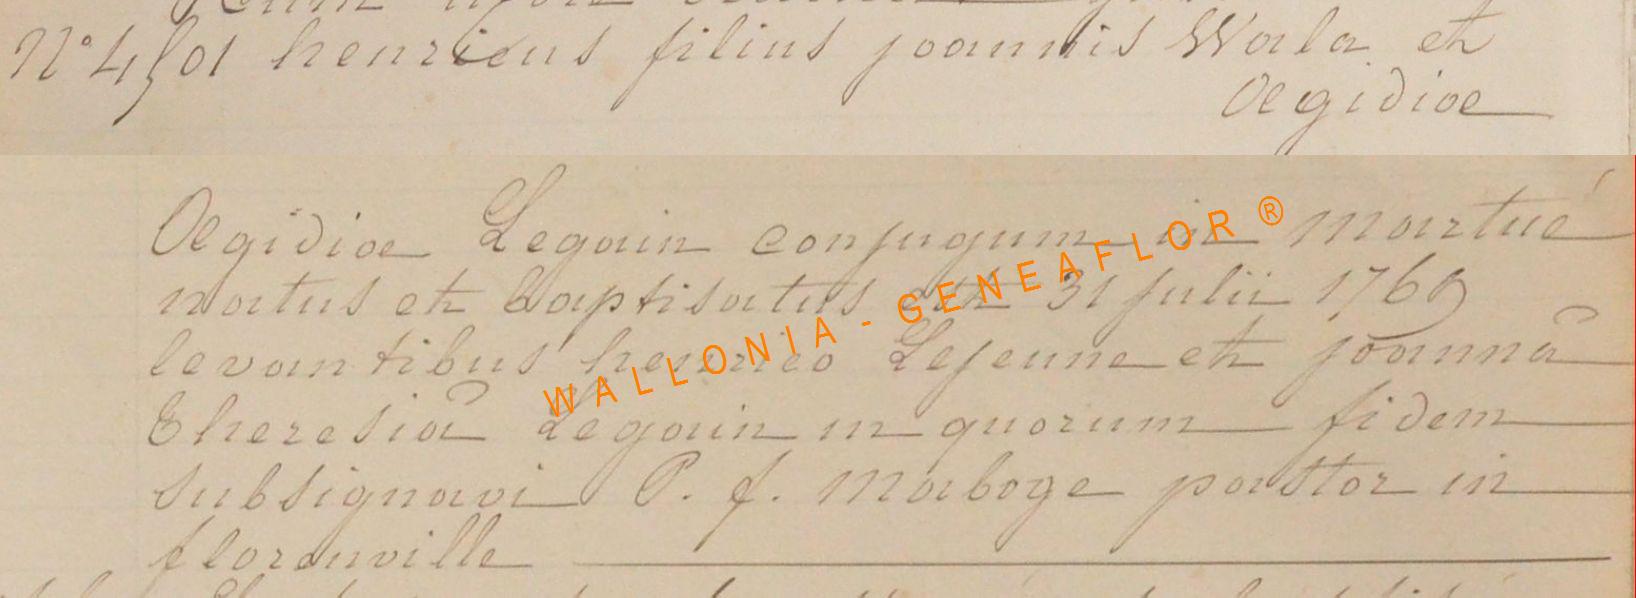 N° 4501 henricus filius joannis Wala et
Oegidioe
Oegidioe Legain conjugum in martué
natus et baptisatus est 31 julii 1769
levantibus henrico Lejeune et joannâ
theresiâ Legain in quorum fidem
subsignavi P. f. Maboge pastor in
florenville
WALLONIA - GENEAFLOR ®